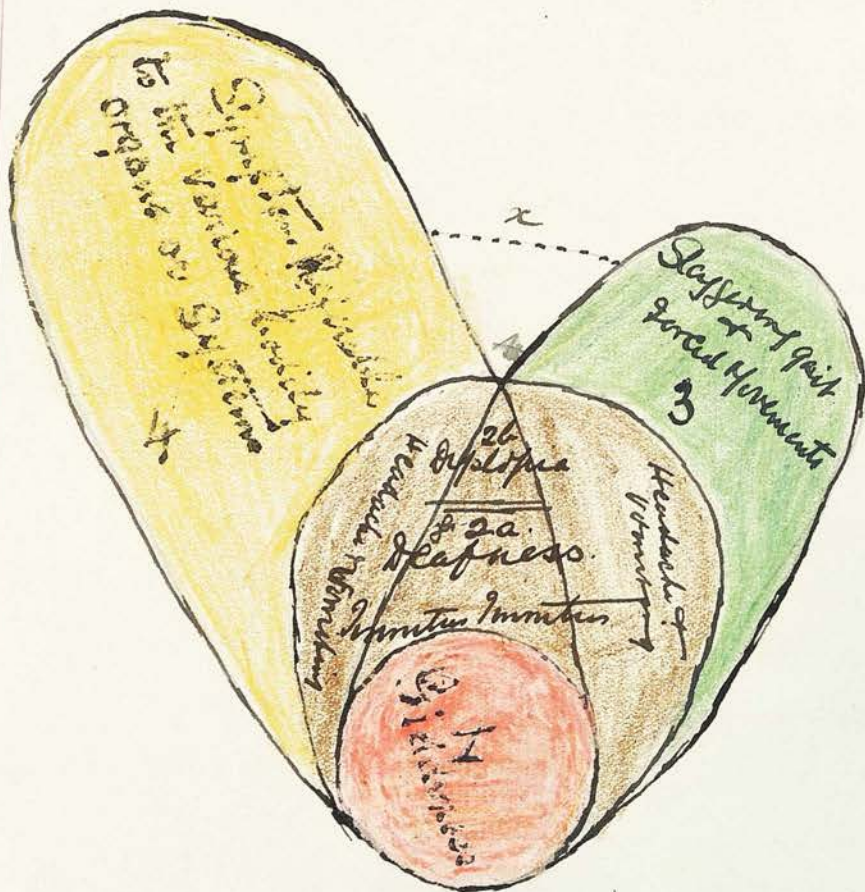 Symptoms Referable
to the various bodily
organs or systems
4
x
Staggering gait
+
Forced Movements
3
2b
Diplopia
& 2a.
Deafness.
Tinnitus Tinnitus
Headache & Vomiting
Headache &
Vomiting
1
Giddiness